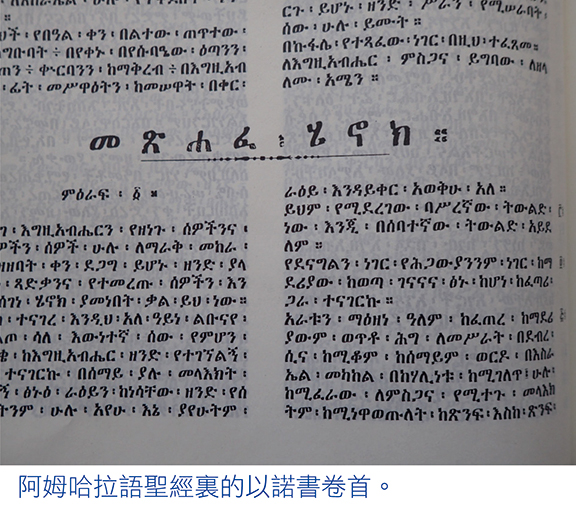 ህች ፡ የበዓል ፡ ቀን ፡ በልተው ፡ ጠጥተው ፡
ግቡባት ፡ በየቀኑ ፡ በየሱባዔው ፡ ዕጣንን ፡
ጠን ፡ ቍርባንን ፡ ከማቅረብ ፡ በእግዚአብ
ፊት ፡ መሥዋዕትን ፡ ከመሠዋት ፡ በቀር ፡
ርጉ ፡ ይሆኑ ፡ ዘንድ ፡ ሥራን ፡ የሚሠራበት
ሰው ፡ ሁሉ ፡ ይሙት ።
በኩፋሌ ፡ የተጻፈው ፡ ነገር ፡ በዚህ ፡ ተፈጸመ ።
ለእግዚአብሔር ፡ ምስጋና ፡ ይግባው ፡ ለዘላ
ለሙ ፡ አሜን ።
መጽሐፈ ፡ ሄኖክ ።
ምዕራፍ ፡ ፩ ።
እግዚአብሔርን ፡ የዘነጉ ፡ ሰዎችንና ፡
ዎችን ፡ ሰዎች ፡ ሁሉ ፡ ለማራቅ ፡ መከራ ፡
ዝዘባት ፡ ቀን ፡ ደጋግ ፡ ይሆኑ ፡ ዘንድ ፡ ያላ
ጻድቃንና ፡ የተመረጡ ፡ ሰዎችን ፡ እን
ሰገነ ፡ ሄኖክ ፡ ያመነበት ፡ ቃል ፡ ይህ ፡ ነው ።
ተናገረ ፡ እንዲህ ፡ አለ ፡ ዓይነ ፡ ልቡናየ
ጠ ፡ ሳለ ፡ እውነተኛ ፡ ሰው ፡ የምሆን ፡
ከእግዚአብሔር ፡ ዘንድ ፡ የተገኘልኝ ፡
ተናገርኩ ፡ በሰማይ ፡ ያሉ ፡ መላእክት ፡
ኝ ፡ ዕኑዕ ፡ ራዕይን ፡ ከነሳቸው ፡ ዘንድ ፡ የሰ
ትንም ፡ ሁሉ ፡ አየሁ ፡ እኔ ፡ ያየሁትም ፡
ራዕይ ፡ እንዳይቀር ፡ አወቅሁ ፡ አለ ።
ይህም ፡ የሚደረገው ፡ በሥረኛው ፡ ትውልድ ፡
ነው ፡ እንጂ ፡ በሰባተኛው ፡ ትውልድ ፡ አይደ
ለም ።
የደናግልን ፡ ነገር ፡ የሕጋውያንንም ፡ ነገር ፡ ከማ
ደሪያው ፡ ከወጣ ፡ ገናናና ፡ ዕኑ ፡ ከሆነ ፡ ከፈጣሪ
ጋራ ፡ ተናገርኩ ።
አራቱን ፡ ማዕዘነ ፡ ዓለም ፡ ከፈጠረ ፡ ከማደሪ
ያውም ፡ ወጥቶ ፡ ሕግ ፡ ለመሥራት ፡ በደብረ
ሲና ፡ ከሚቆም ፡ ከሰማይም ፡ ወርዶ ፡ በእስራ
ኤል ፡ መካከል ፡ በከሃሊነቱ ፡ ከሚገለጥ ፡ ሁሉ
ከሚፈራው ፡ ለምስጋና ፡ የሚተጉ ፡ መላእክ
ትም ፡ ከሚነዋወጡለት ፡ ከጽንፍ ፡ እስከ ፡ ጽንፍ ፡
阿姆哈拉語聖經裏的以諾書卷首。